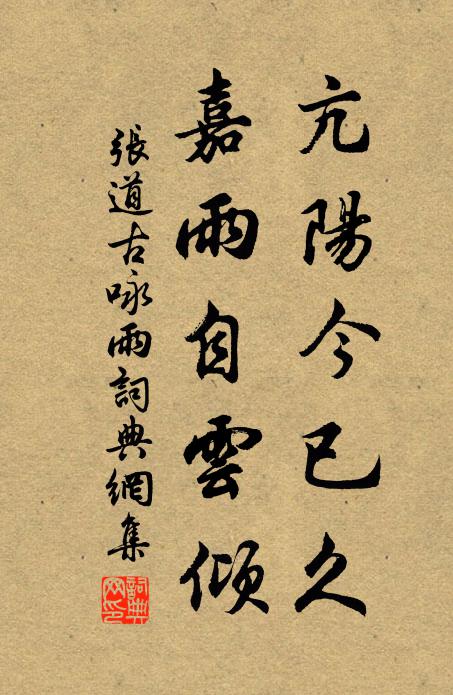 亢陽今已久
嘉雨自雲傾
張道古咏雨詞典網集
詞典網印